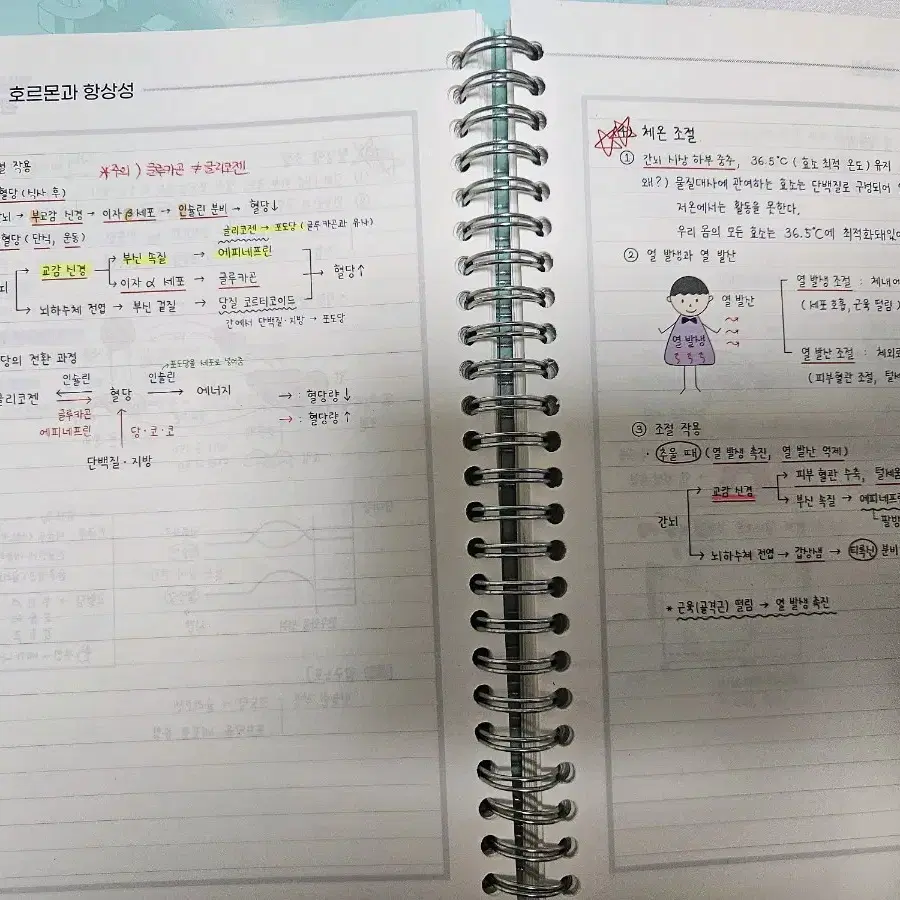 호르몬과 항상성
절 작용
*주의) 글루카곤 ≠ 글리코젠
혈당 (식사 후)
뇌 → 부교감 신경 → 이자 β세포 → 인슐린 분비 → 혈당↓
혈당 (단식, 운동)
글리코젠 → 포도당 (글루카곤과 유사)
교감 신경 → 부신 속질 → 에피네프린
이자 α 세포 → 글루카곤
→ 혈당↑
뇌하수체 전엽 → 부신 겉질 → 당질 코르티코이드
간에서 단백질·지방 → 포도당
당의 전환 과정
포도당을 세포로 넣어줌
인슐린 인슐린
글리코젠 혈당 → 에너지
글루카곤
에피네프린
당·코·코
단백질·지방
→ : 혈당량↓
→ : 혈당량↑
체온 조절
① 간뇌 시상 하부 중추, 36.5°C (효소 최적 온도) 유지
왜?) 물질대사에 관여하는 효소는 단백질로 구성되어
저온에서는 활동을 못한다.
우리 몸의 모든 효소는 36.5°C에 최적화돼있어
② 열 발생과 열 발산
열 발산
열 발생
열 발생 조절 : 체내에
(세포 호흡, 근육 떨림)
열 발산 조절 : 체외로
(피부혈관 조절, 털세
③ 조절 작용
· 추울 때 (열 발생 촉진, 열 발산 억제)
간뇌
교감 신경 → 피부 혈관 수축, 털세움
부신 속질 → 에피네프
뇌하수체 전엽 → 갑상샘 → 티록신 분비
* 근육(골격근) 떨림 → 열 발생 촉진